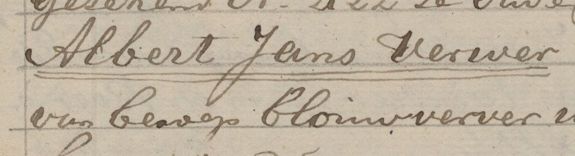 Albert Jans Verwer
van beroep blouwverver